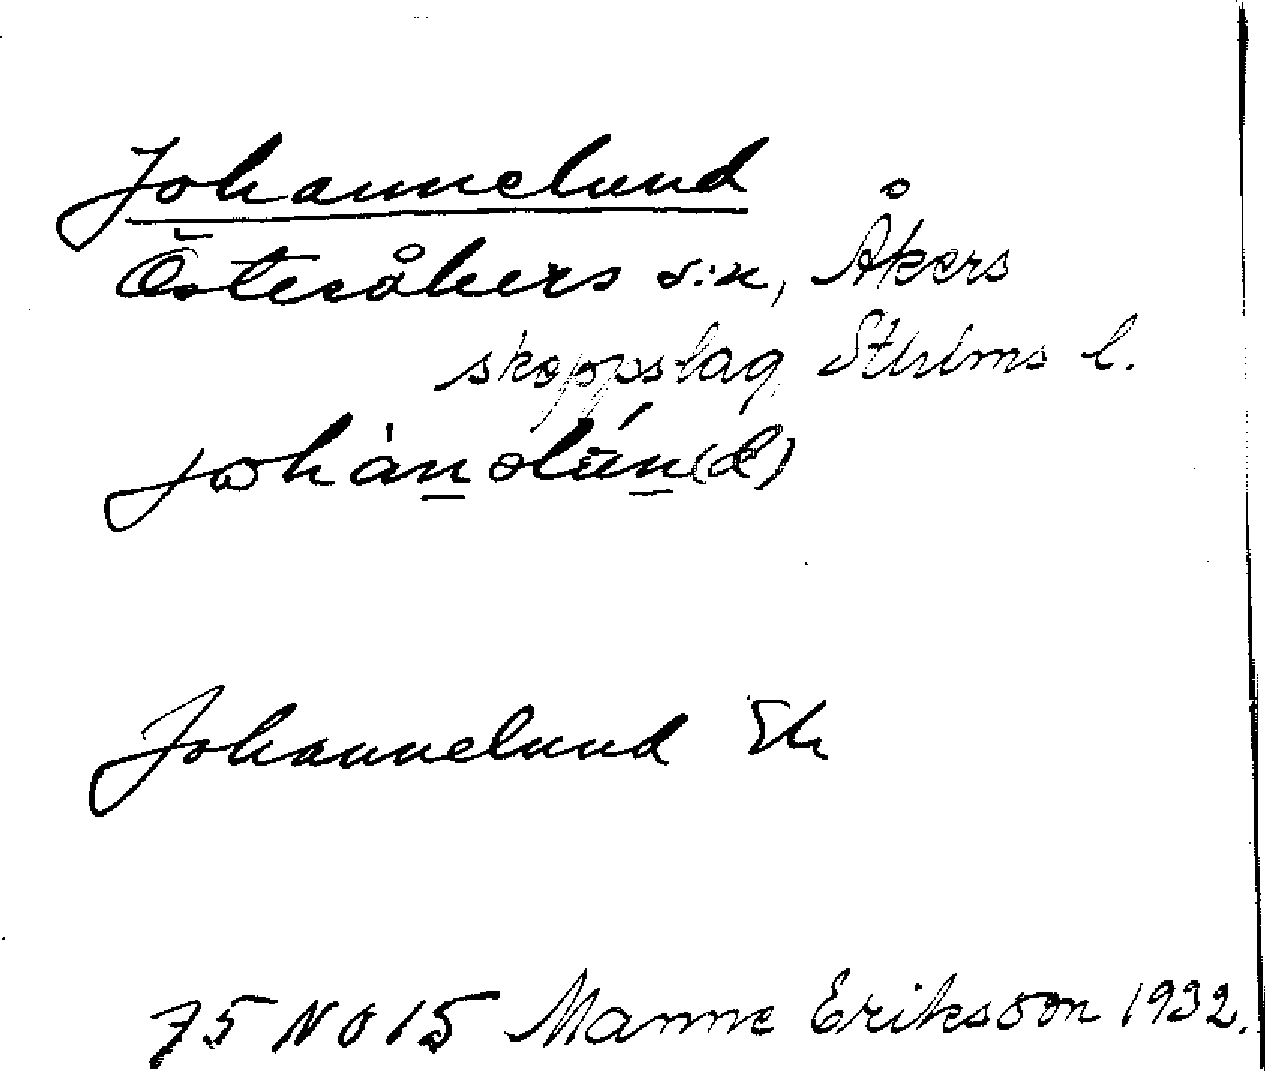 Johannelund
Österåkers s:n, Åkers
skeppslag Sthlms l.
Johannelund Ek
75 NO 15 Manne Eriksson 1932.